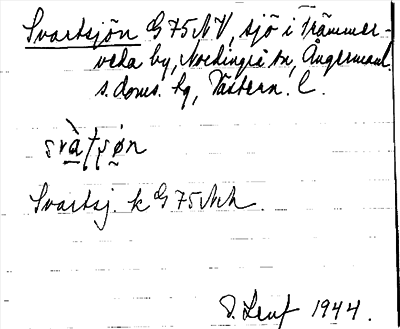 Svartsjön G 75 NV, sjö i Främmer-
veda by, Nordingrå sn, Ångermanl.
s. doms. hg, Västern. l.
svàtsøn
Svartsj. k G 75 NA.
D. Lenf 1944.